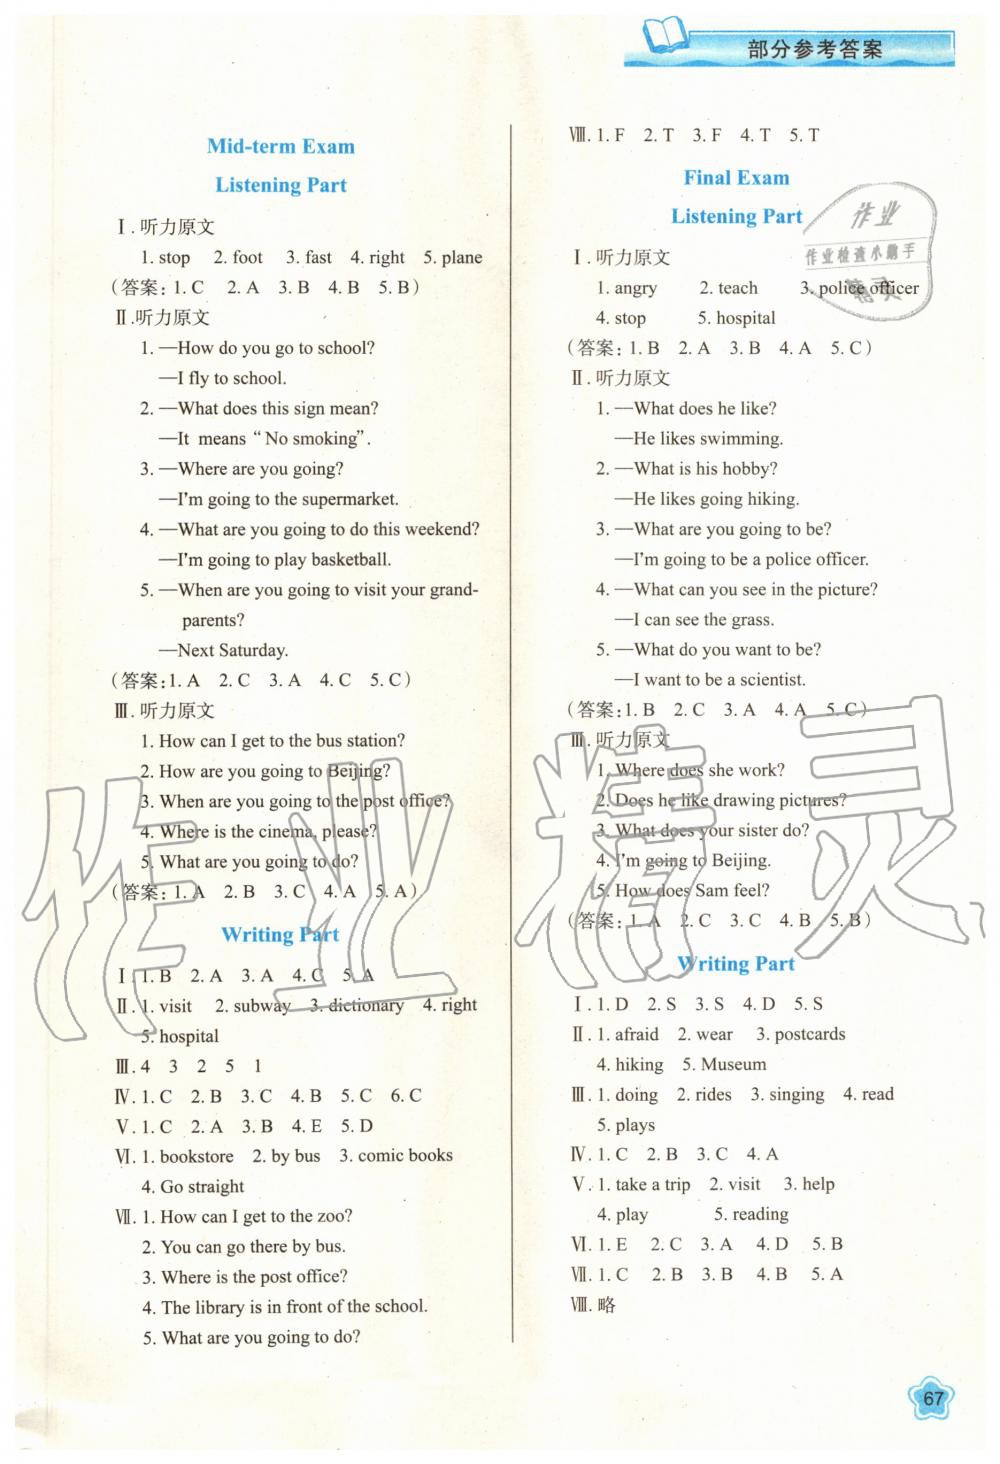 部分参考答案
Mid-term Exam
Listening Part
Ⅰ.听力原文
1. stop 2. foot 3. fast 4. right 5. plane
(答案:1. C 2. A 3. B 4. B 5. B)
Ⅱ.听力原文
1. —How do you go to school?
—I fly to school.
2. —What does this sign mean?
—It means “No smoking”.
3. —Where are you going?
—I'm going to the supermarket.
4. —What are you going to do this weekend?
—I'm going to play basketball.
5. —When are you going to visit your grand-
parents?
—Next Saturday.
(答案:1. A 2. C 3. A 4. C 5. C)
Ⅲ.听力原文
1. How can I get to the bus station?
2. How are you going to Beijing?
3. When are you going to the post office?
4. Where is the cinema, please?
5. What are you going to do?
(答案:1. A 2. B 3. C 4. A 5. A)
Writing Part
Ⅰ.1. B 2. A 3. A 4. C 5. A
Ⅱ.1. visit 2. subway 3. dictionary 4. right
5. hospital
Ⅲ.4 3 2 5 1
Ⅳ.1. C 2. B 3. C 4. B 5. C 6. C
Ⅴ.1. C 2. A 3. B 4. E 5. D
Ⅵ.1. bookstore 2. by bus 3. comic books
4. Go straight
Ⅶ.1. How can I get to the zoo?
2. You can go there by bus.
3. Where is the post office?
4. The library is in front of the school.
5. What are you going to do?
Ⅷ.1. F 2. T 3. F 4. T 5. T
Final Exam
Listening Part
Ⅰ.听力原文
1. angry 2. teach 3. police officer
4. stop 5. hospital
(答案:1. B 2. A 3. B 4. A 5. C)
Ⅱ.听力原文
1. —What does he like?
—He likes swimming.
2. —What is his hobby?
—He likes going hiking.
3. —What are you going to be?
—I'm going to be a police officer.
4. —What can you see in the picture?
—I can see the grass.
5. —What do you want to be?
—I want to be a scientist.
(答案:1. B 2. C 3. A 4. A 5. C)
Ⅲ.听力原文
1. Where does she work?
2. Does he like drawing pictures?
3. What does your sister do?
4. I'm going to Beijing.
5. How does Sam feel?
(答案:1. A 2. C 3. C 4. B 5. B)
Writing Part
Ⅰ.1. D 2. S 3. S 4. D 5. S
Ⅱ.1. afraid 2. wear 3. postcards
4. hiking 5. Museum
Ⅲ.1. doing 2. rides 3. singing 4. read
5. plays
Ⅳ.1. C 2. B 3. C 4. A
Ⅴ.1. take a trip 2. visit 3. help
4. play 5. reading
Ⅵ.1. E 2. C 3. A 4. D 5. B
Ⅶ.1. C 2. B 3. B 4. B 5. A
Ⅷ.略
67
作业
作业检查小助手
精灵
作业精灵